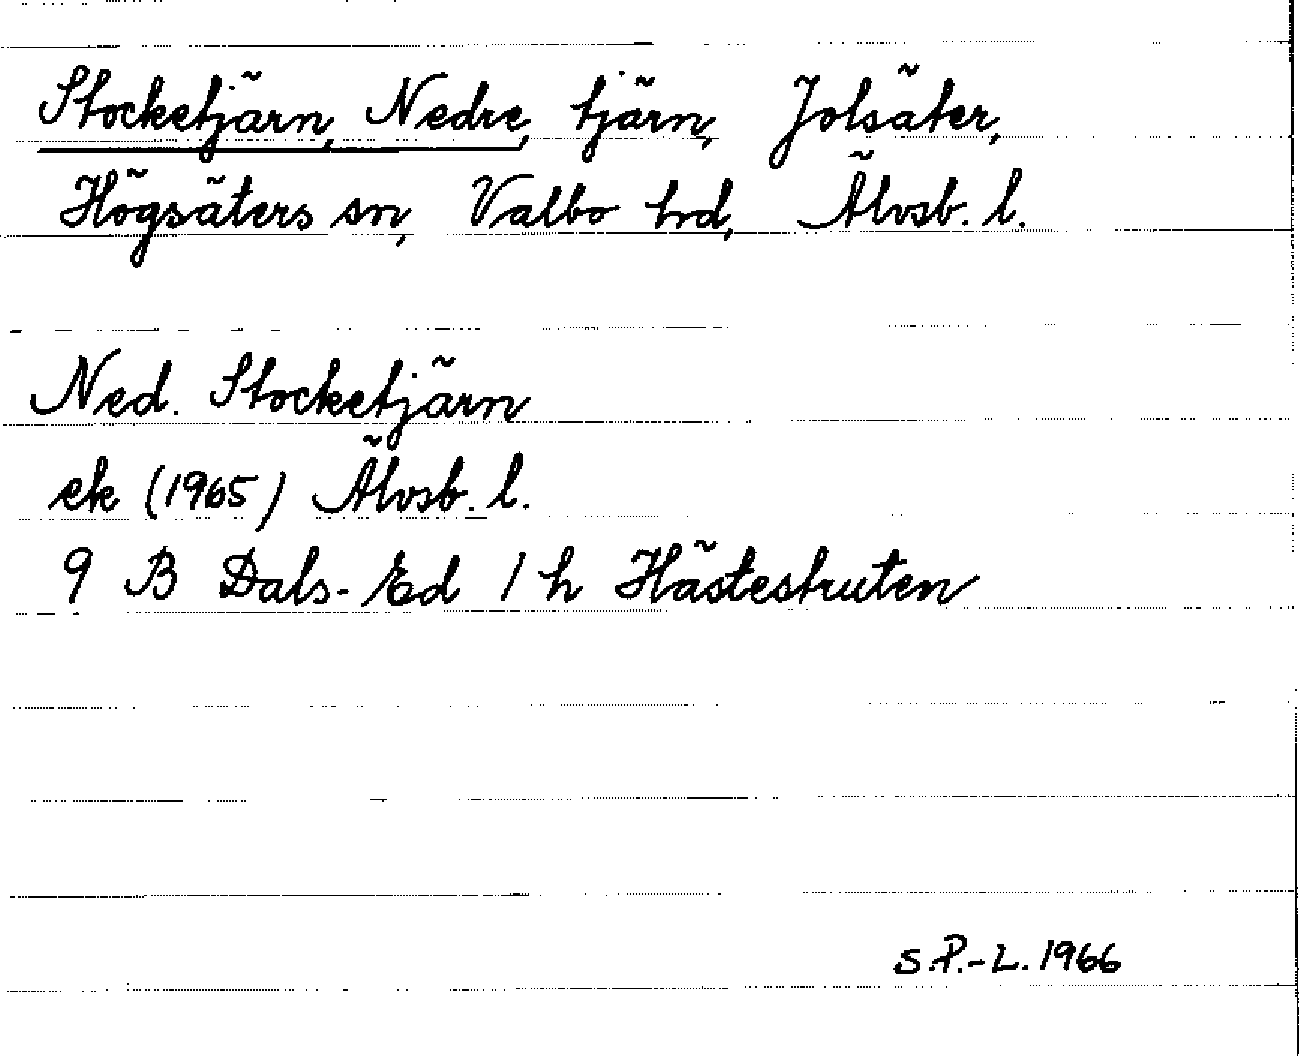 Stocketjärn, Nedre, tjärn, Jolsäter,
Högsäters sn, Valbo hd, Älvsb. l.
Ned. Stocketjärn
ek (1965) Älvsb. l.
9 B Dals-Ed 1 h Hästestruten
S.P.-L. 1966